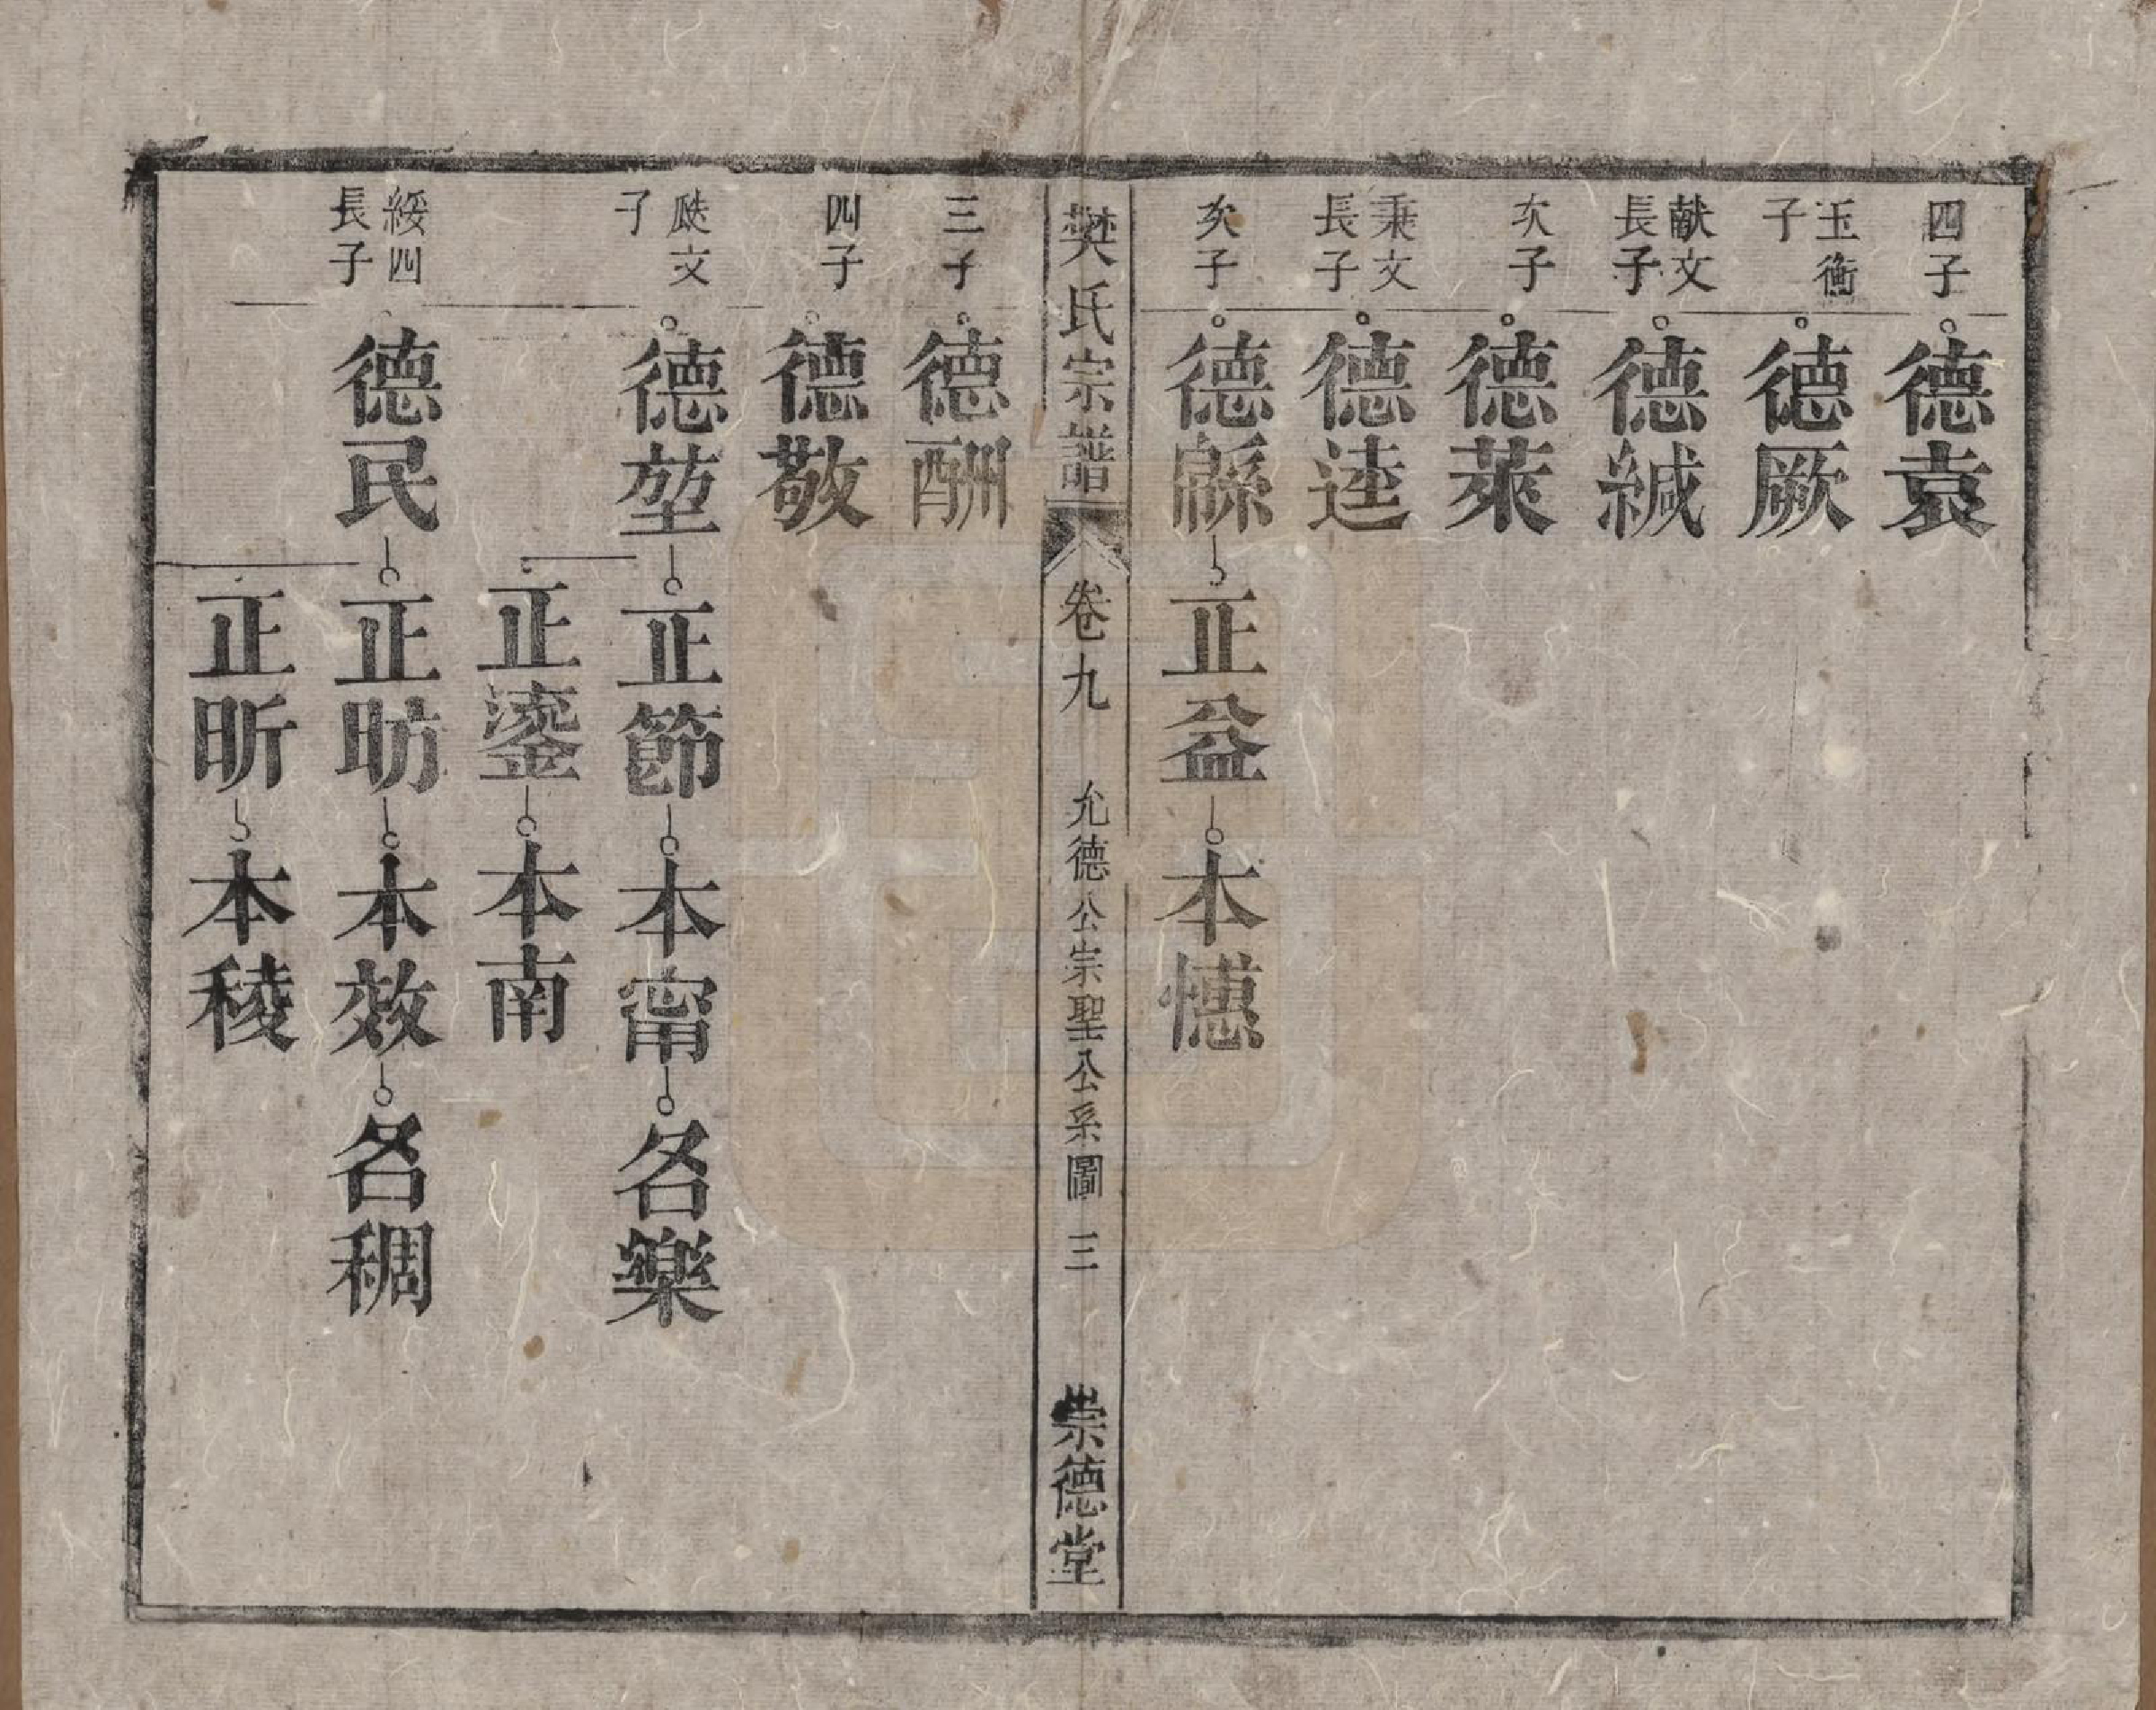 四子
德袁
玉衡
子
德厥
献文
長子
德緘
次子
德萊
秉文
長子
德逵
次子
德緜
正益
本憓
樊氏宗譜
卷九
允德公宗聖公系圖
三
崇德堂
三子
德酬
四子
德敬
文
子
德堃
正節
本甯
名樂
正鎏
本南
綏四
長子
德民
正昉
本效
名稠
正昕
本稜